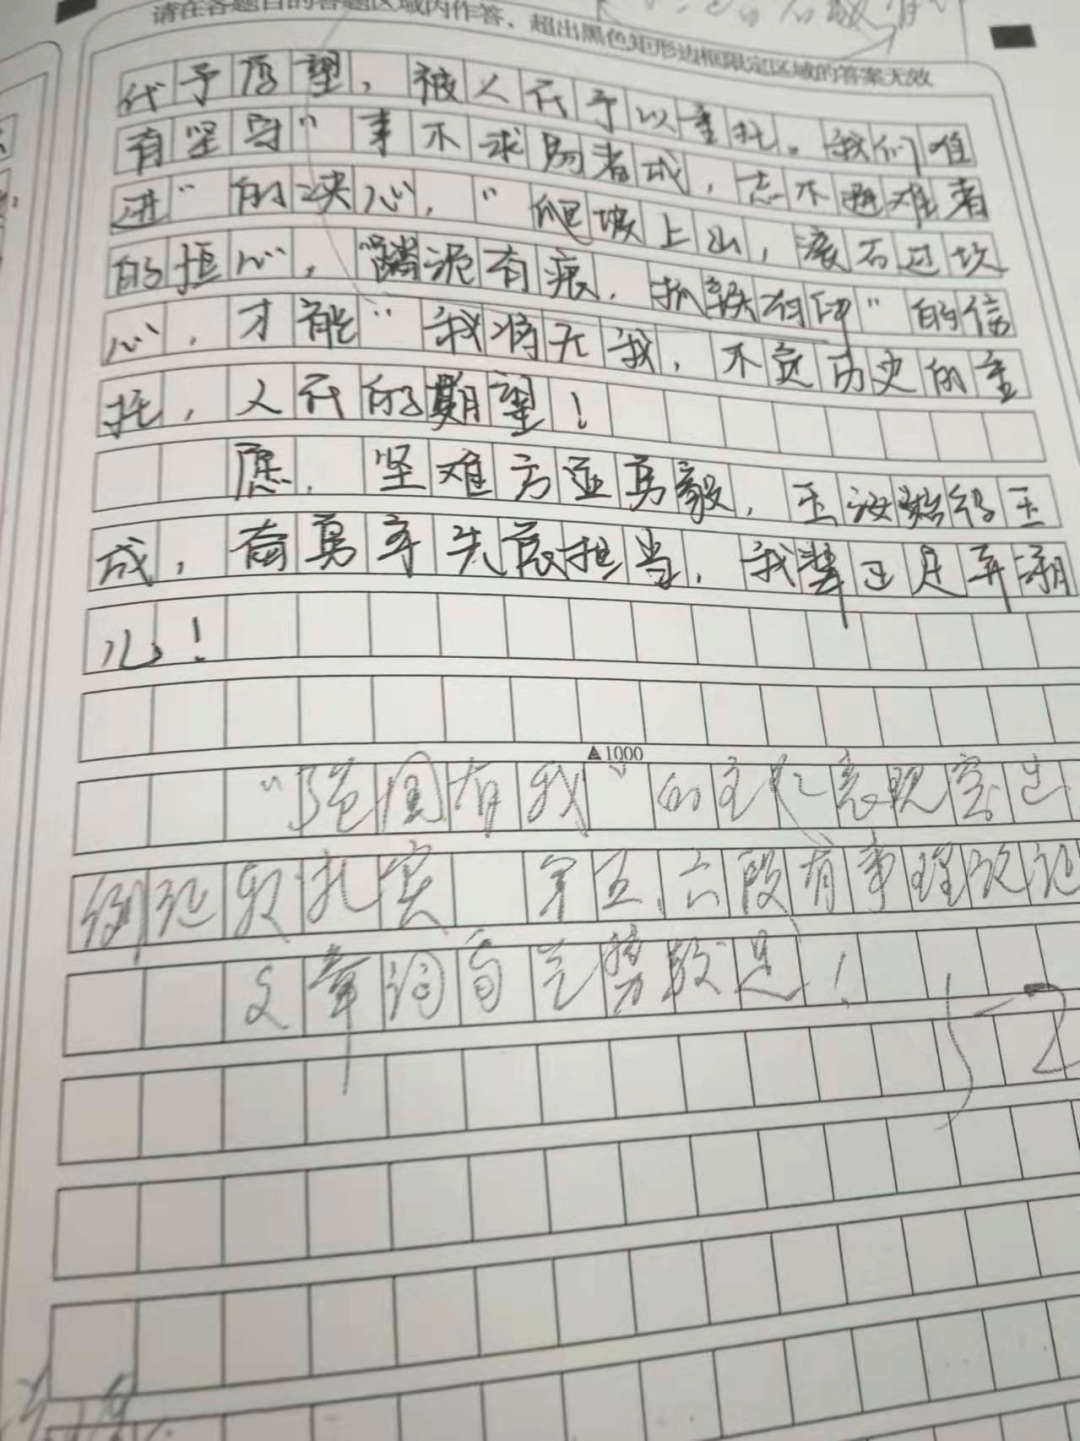 请在各题目的答题区域内作答，超出黑色矩形边框限定区域的答案无效
代予愿望，被人代予以重托。我们唯
有坚守“事不求易者成，志不避难者
进”的决心，“爬坡上山，滚石过坎
的恒心，“蹄泥有痕，抓铁有印”的信
心，才能“我将无我，不负历史的重
托，人代的期望！
愿，坚难方显勇毅，玉汝始得玉
成，奋勇争先展担当，我辈正是弄潮
儿！
▲1000
“强国有我”的主化意观突出
例论较扎实 第五、六段有事理效论
文章词句气势较足！
52